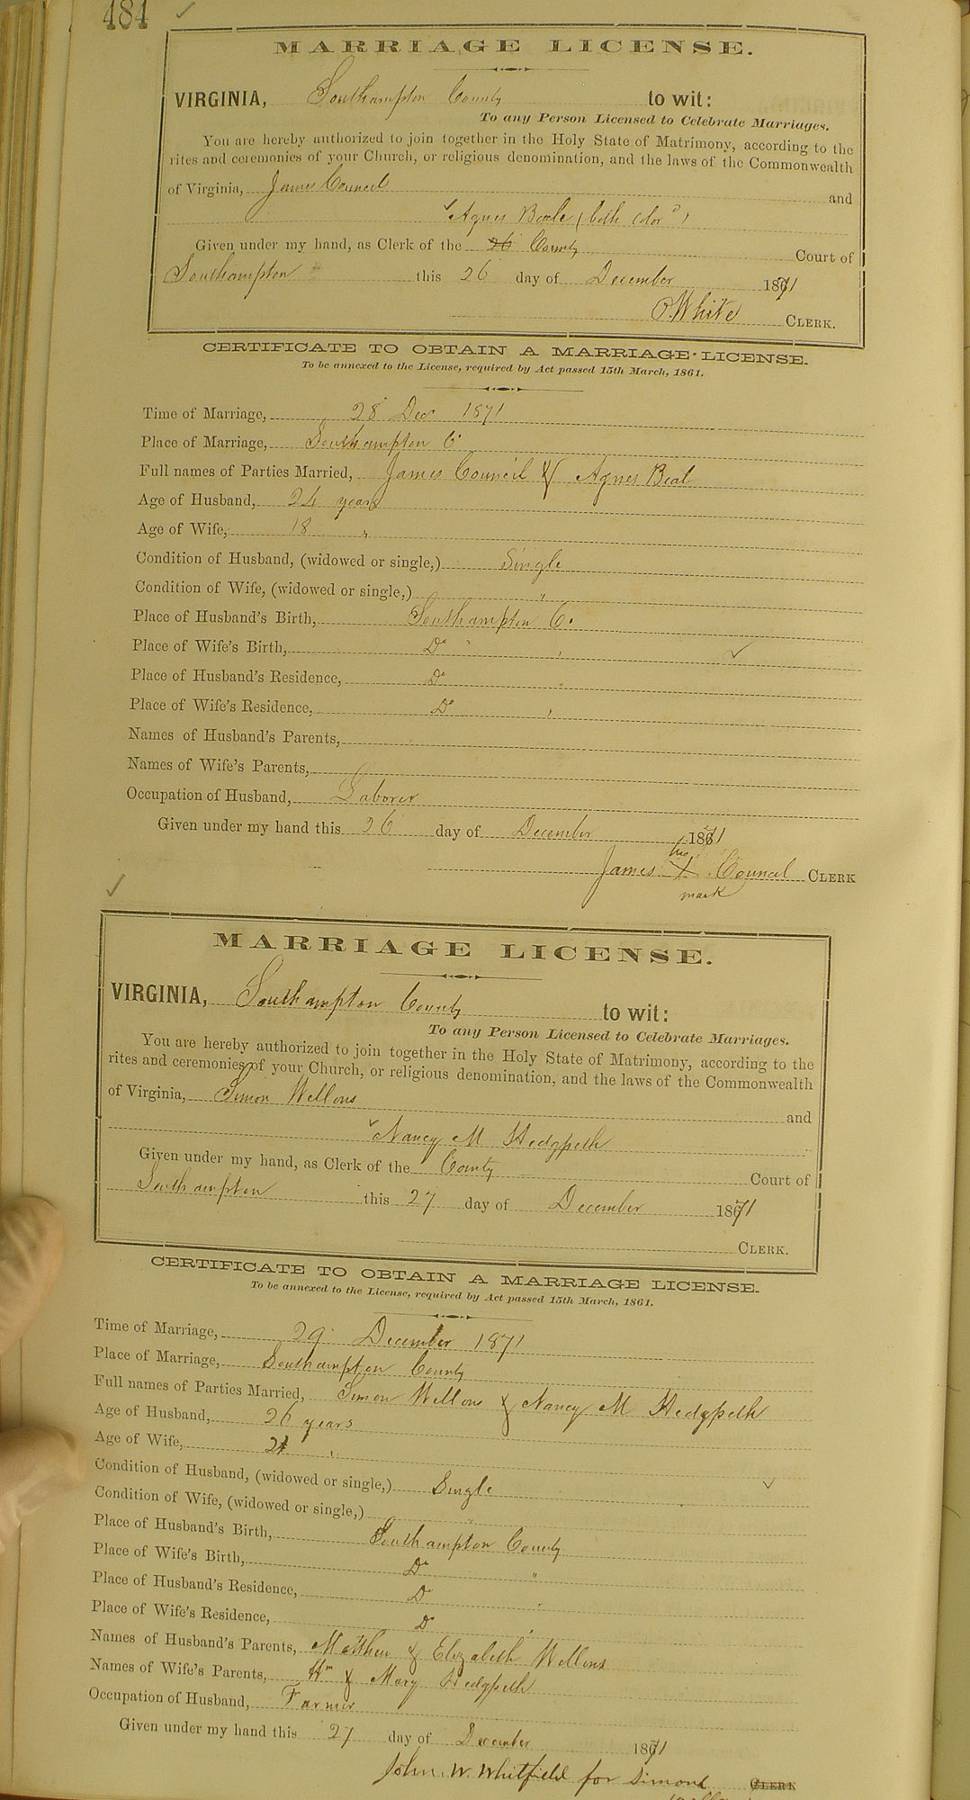 484
MARRIAGE LICENSE.
VIRGINIA, Southampton County to wit:
To any Person Licensed to Celebrate Marriages.
You are hereby authorized to join together in the Holy State of Matrimony, according to the
rites and ceremonies of your Church, or religious denomination, and the laws of the Commonwealth
of Virginia, James Council and
Agnes Beale (both cold)
Given under my hand, as Clerk of the 26 County Court of
Southampton this 26 day of December 1871
White CLERK.
CERTIFICATE TO OBTAIN A MARRIAGE LICENSE.
To be annexed to the License, required by Act passed 15th March, 1861.
Time of Marriage, 28 Decr 1871
Place of Marriage, Southampton Co
Full names of Parties Married, James Council & Agnes Beal
Age of Husband, 24 years
Age of Wife, 18 "
Condition of Husband, (widowed or single,) Single
Condition of Wife, (widowed or single,) "
Place of Husband's Birth, Southampton Co.
Place of Wife's Birth, Do "
Place of Husband's Residence, Do "
Place of Wife's Residence, Do "
Names of Husband's Parents,
Names of Wife's Parents,
Occupation of Husband, Laborer
Given under my hand this 26 day of December 1871
his
James X Council CLERK
mark
MARRIAGE LICENSE.
VIRGINIA, Southampton County to wit:
To any Person Licensed to Celebrate Marriages.
You are hereby authorized to join together in the Holy State of Matrimony, according to the
rites and ceremonies of your Church, or religious denomination, and the laws of the Commonwealth
of Virginia, Simon Wellons and
Nancy M Hedgpeth
Given under my hand, as Clerk of the County Court of
Southampton this 27 day of December 1871
CLERK.
CERTIFICATE TO OBTAIN A MARRIAGE LICENSE.
To be annexed to the License, required by Act passed 15th March, 1861.
Time of Marriage, 29 December 1871
Place of Marriage, Southampton County
Full names of Parties Married, Simon Wellons & Nancy M Hedgpeth
Age of Husband, 26 years
Age of Wife, 21 "
Condition of Husband, (widowed or single,) Single
Condition of Wife, (widowed or single,) "
Place of Husband's Birth, Southampton County
Place of Wife's Birth, Do "
Place of Husband's Residence, D "
Place of Wife's Residence, D "
Names of Husband's Parents, Matthew & Elizabeth Wellons
Names of Wife's Parents, Wm & Mary Hedgpeth
Occupation of Husband, Farmer
Given under my hand this 27 day of December 1871
John W. Whitfield for Simond CLERK